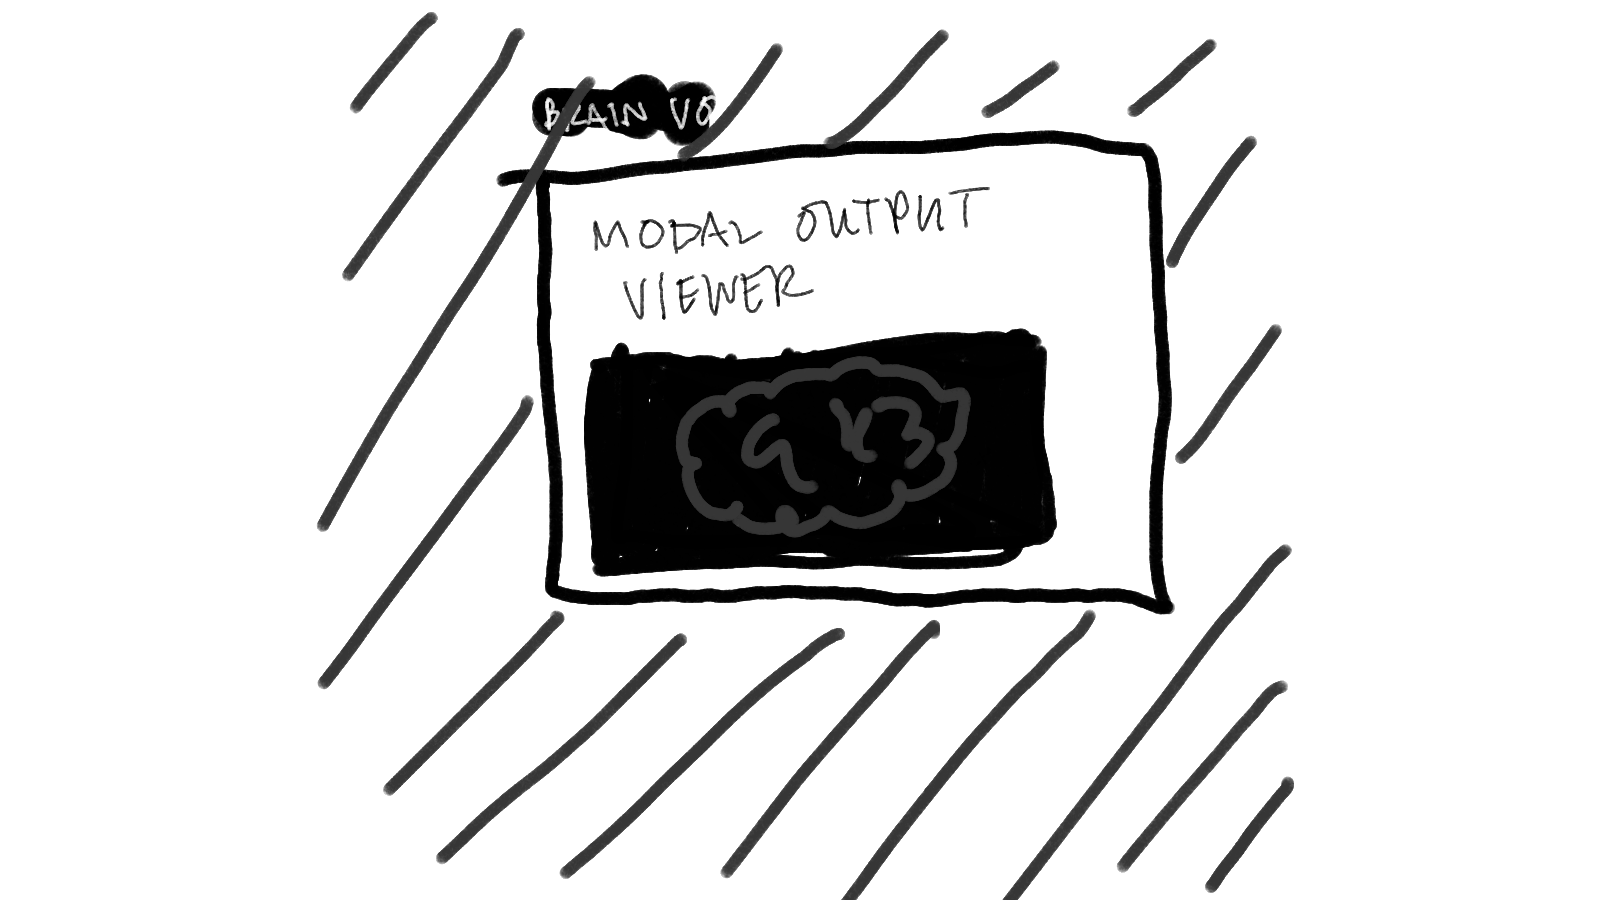 BRAIN VO
MODAL OUTPUT
VIEWER